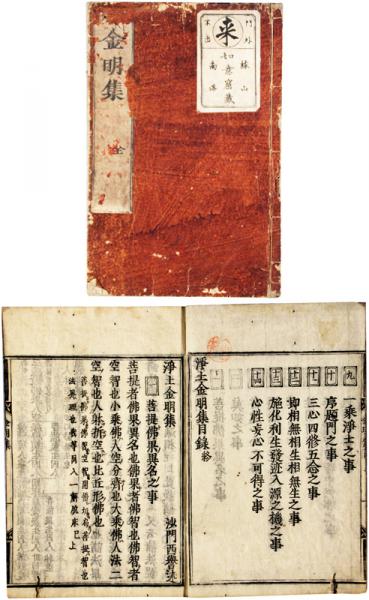 金明集 全
門外
不出
來
如意窟藏
縁山
九 一乘淨土之事
十 序題門之事
十一 三心四修五念之事
十二 即相無相生相無生之事
十三 施化利生發迹入源之機之事
十四 心性妄心不可得之事
淨土金明集目錄終
淨土金明集 沙門西譽述
一 菩提佛果異名之事
菩提者佛果異名也佛果者佛智也佛智者
空智也小乘佛人空分齊也大乘佛人法二
空智也人空也比丘形佛也